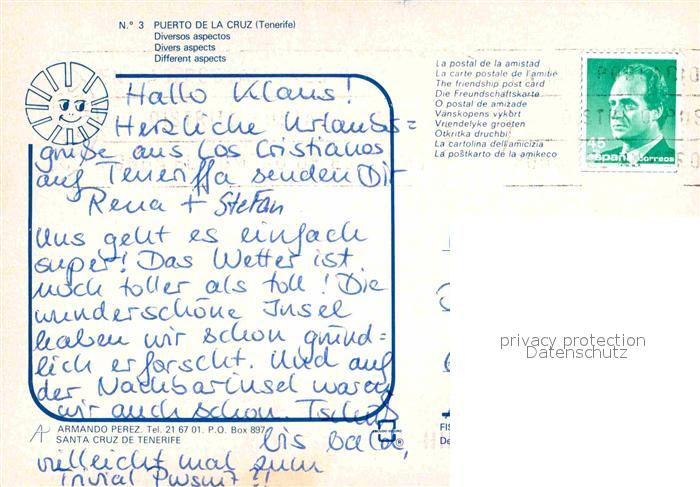 N.° 3 PUERTO DE LA CRUZ (Tenerife)
Diversos aspectos
Divers aspects
Different aspects
La postal de la amistad
La carte postale de l'amitié
The friendship post card
Die Freundschaftskarte
O postal de amizade
Vänskopens vykbrt
Vriendelyke groeten
Otkritka druchbi
La cartolina dell'amicizia
La poŝtkarto de la amikeco
45
españa correos
Hallo Klaus!
Herzliche Urlaubs=
grüße aus Los Cristianos
auf Teneriffa senden Dir
Rena + Stefan
Uns geht es einfach
super! Das Wetter ist
noch toller als toll! Die
wunderschöne Insel
haben wir schon gründ=
lich erforscht. Und auf
der Nachbarinsel waren
wir auch schon. Tschüß
bis bald,
vielleicht mal zum
ARMANDO PEREZ. Tel. 21 67 01. P.O. Box 897
SANTA CRUZ DE TENERIFE
FIS
De
privacy protection
Datenschutz